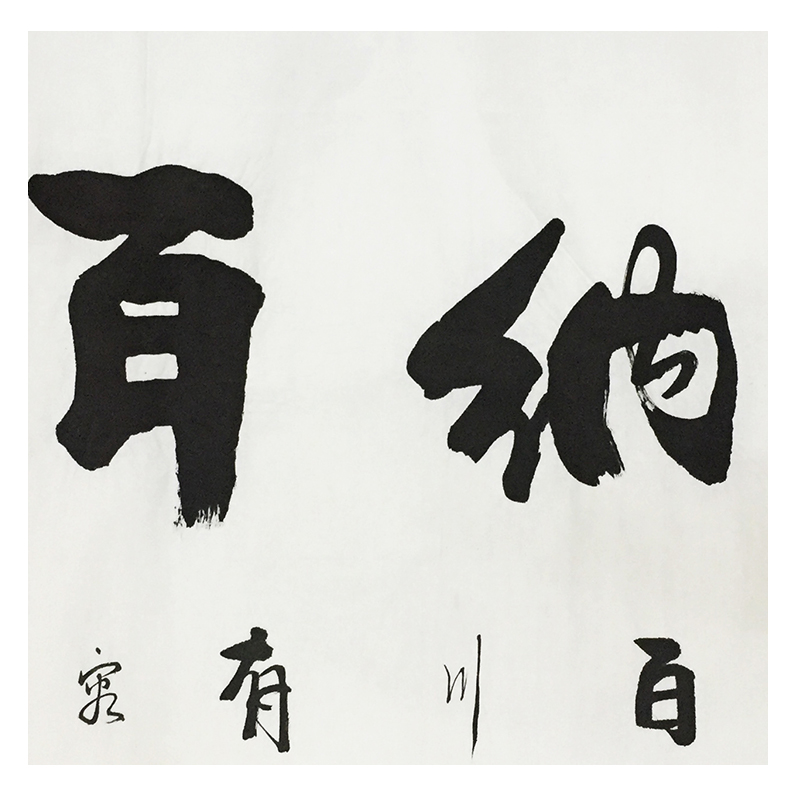 纳百
百川有容